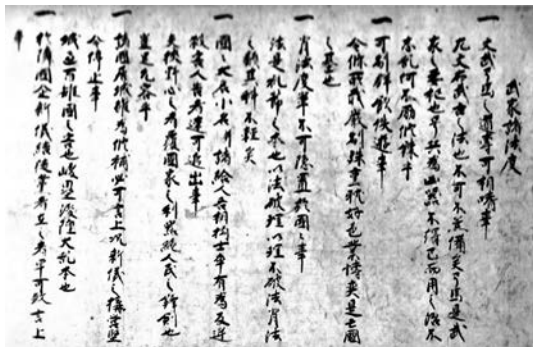 武家諸法度
一 文武弓馬之道専可相嗜事
左文右武古之法也不可不兼備矣弓馬是武
家之要枢也号兵為凶器不得已而用之治不
忘乱何不励修錬乎
一 可制群飲佚遊事
令條所載厳制殊重耽好色業博奕是亡国
之基也
一 背法度輩不可隠置於国々事
法是礼節之本也以法破理以理不破法背法
之類其科不軽矣
一 国々大名小名并諸給人各相抱士卒有為反逆
殺害人告者速可追出事
夫挟野心之者為覆国家之利器絶人民之鋒剣也
豈足允容乎
一 諸国居城雖為修補必可言上況新儀之構営堅
令停止事
城過百雉国之害也峻塁浚隍大乱本也
一 於隣国企新儀結徒党者在之者早可致言上
事